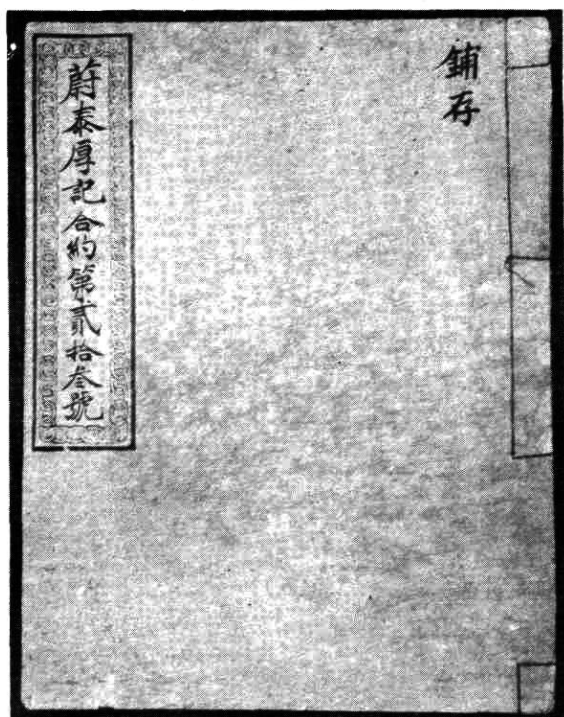 鋪存
蔚泰厚記合約第貳拾叁號